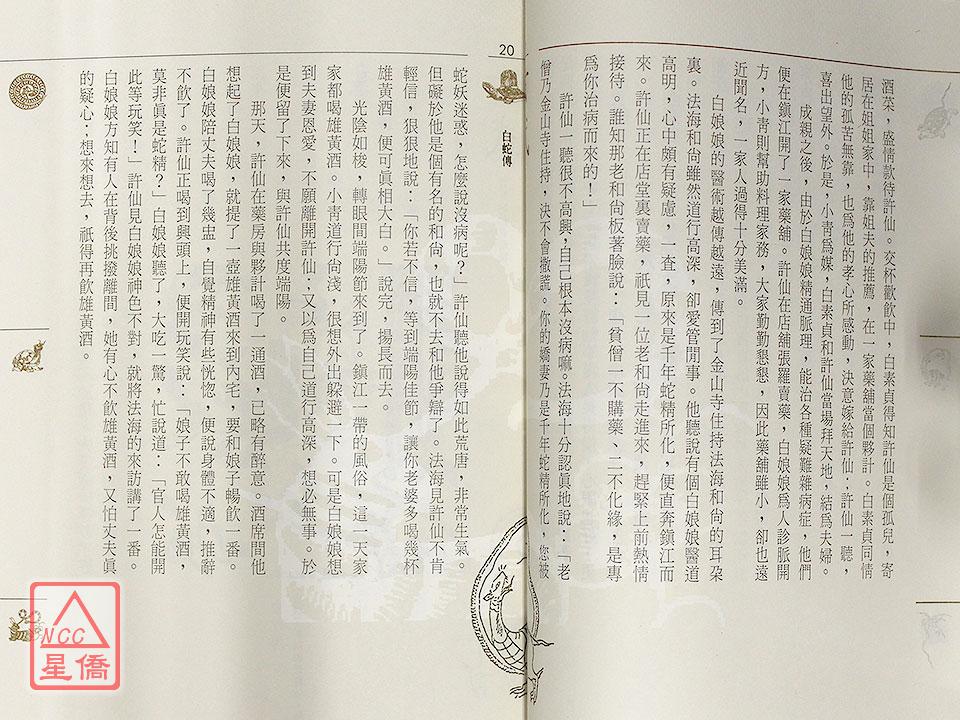 酒菜，盛情款待許仙。交杯歡飲中，白素貞得知許仙是個孤兒，寄
居在姐姐家中，靠姐夫的推薦，在一家藥舖當個夥計。白素貞同情
他的孤苦無靠，也爲他的孝心所感動，決意嫁給許仙；許仙一聽，
喜出望外。於是，小青爲媒，白素貞和許仙當場拜天地，結爲夫婦。
成親之後，由於白娘娘精通脈理，能治各種疑難雜病症，他們
便在鎮江開了一家藥舖。許仙在店舖張羅賣藥，白娘娘爲人診脈開
方，小青則幫助料理家務，大家勤勤懇懇，因此藥舖雖小，卻也遠
近聞名，一家人過得十分美滿。
白娘娘的醫術越傳越遠，傳到了金山寺住持法海和尙的耳朶
裏。法海和尙雖然道行高深，卻愛管閒事。他聽說有個白娘娘醫道
高明，心中頗有疑慮，一査，原來是千年蛇精所化，便直奔鎮江而
來。許仙正在店堂裏賣藥，衹見一位老和尙走進來，趕緊上前熱情
接待。誰知那老和尙板著臉說：「貧僧一不購藥、二不化緣，是專
爲你治病而來的！」
許仙一聽很不高興，自己根本沒病嘛。法海十分認眞地說：「老
僧乃金山寺住持，決不會撒謊。你的嬌妻乃是千年蛇精所化，您被
20
白蛇傳
蛇妖迷惑，怎麼說沒病呢？」許仙聽他說得如此荒唐，非常生氣。
但礙於他是個有名的和尙，也就不去和他爭辯了。法海見許仙不肯
輕信，狠狠地說：「你若不信，等到端陽佳節，讓你老婆多喝幾杯
雄黃酒，便可眞相大白。」說完，揚長而去。
光陰如梭，轉眼間端陽節來到了。鎮江一帶的風俗，這一天家
家都喝雄黃酒。小青道行尙淺，很想外出躱避一下。可是白娘娘想
到夫妻恩愛，不願離開許仙；又以爲自己道行高深，想必無事。於
是便留了下來，與許仙共度端陽。
那天，許仙在藥房與夥計喝了一通酒，已略有醉意。酒席間他
想起了白娘娘，就提了一壺雄黃酒來到內宅，要和娘子暢飲一番。
白娘娘陪丈夫喝了幾盅，自覺精神有些恍惚，便說身體不適，推辭
不飲了。許仙正喝到興頭上，便開玩笑說：「娘子不敢喝雄黃酒，
莫非眞是蛇精？」白娘娘聽了，大吃一驚，忙說道：「官人怎能開
此等玩笑！」許仙見白娘娘神色不對，就將法海的來訪講了一番。
白娘娘方知有人在背後挑撥離間，她有心不飲雄黃酒，又怕丈夫眞
的疑心；想來想去，衹得再飲雄黃酒。
NCC
星僑